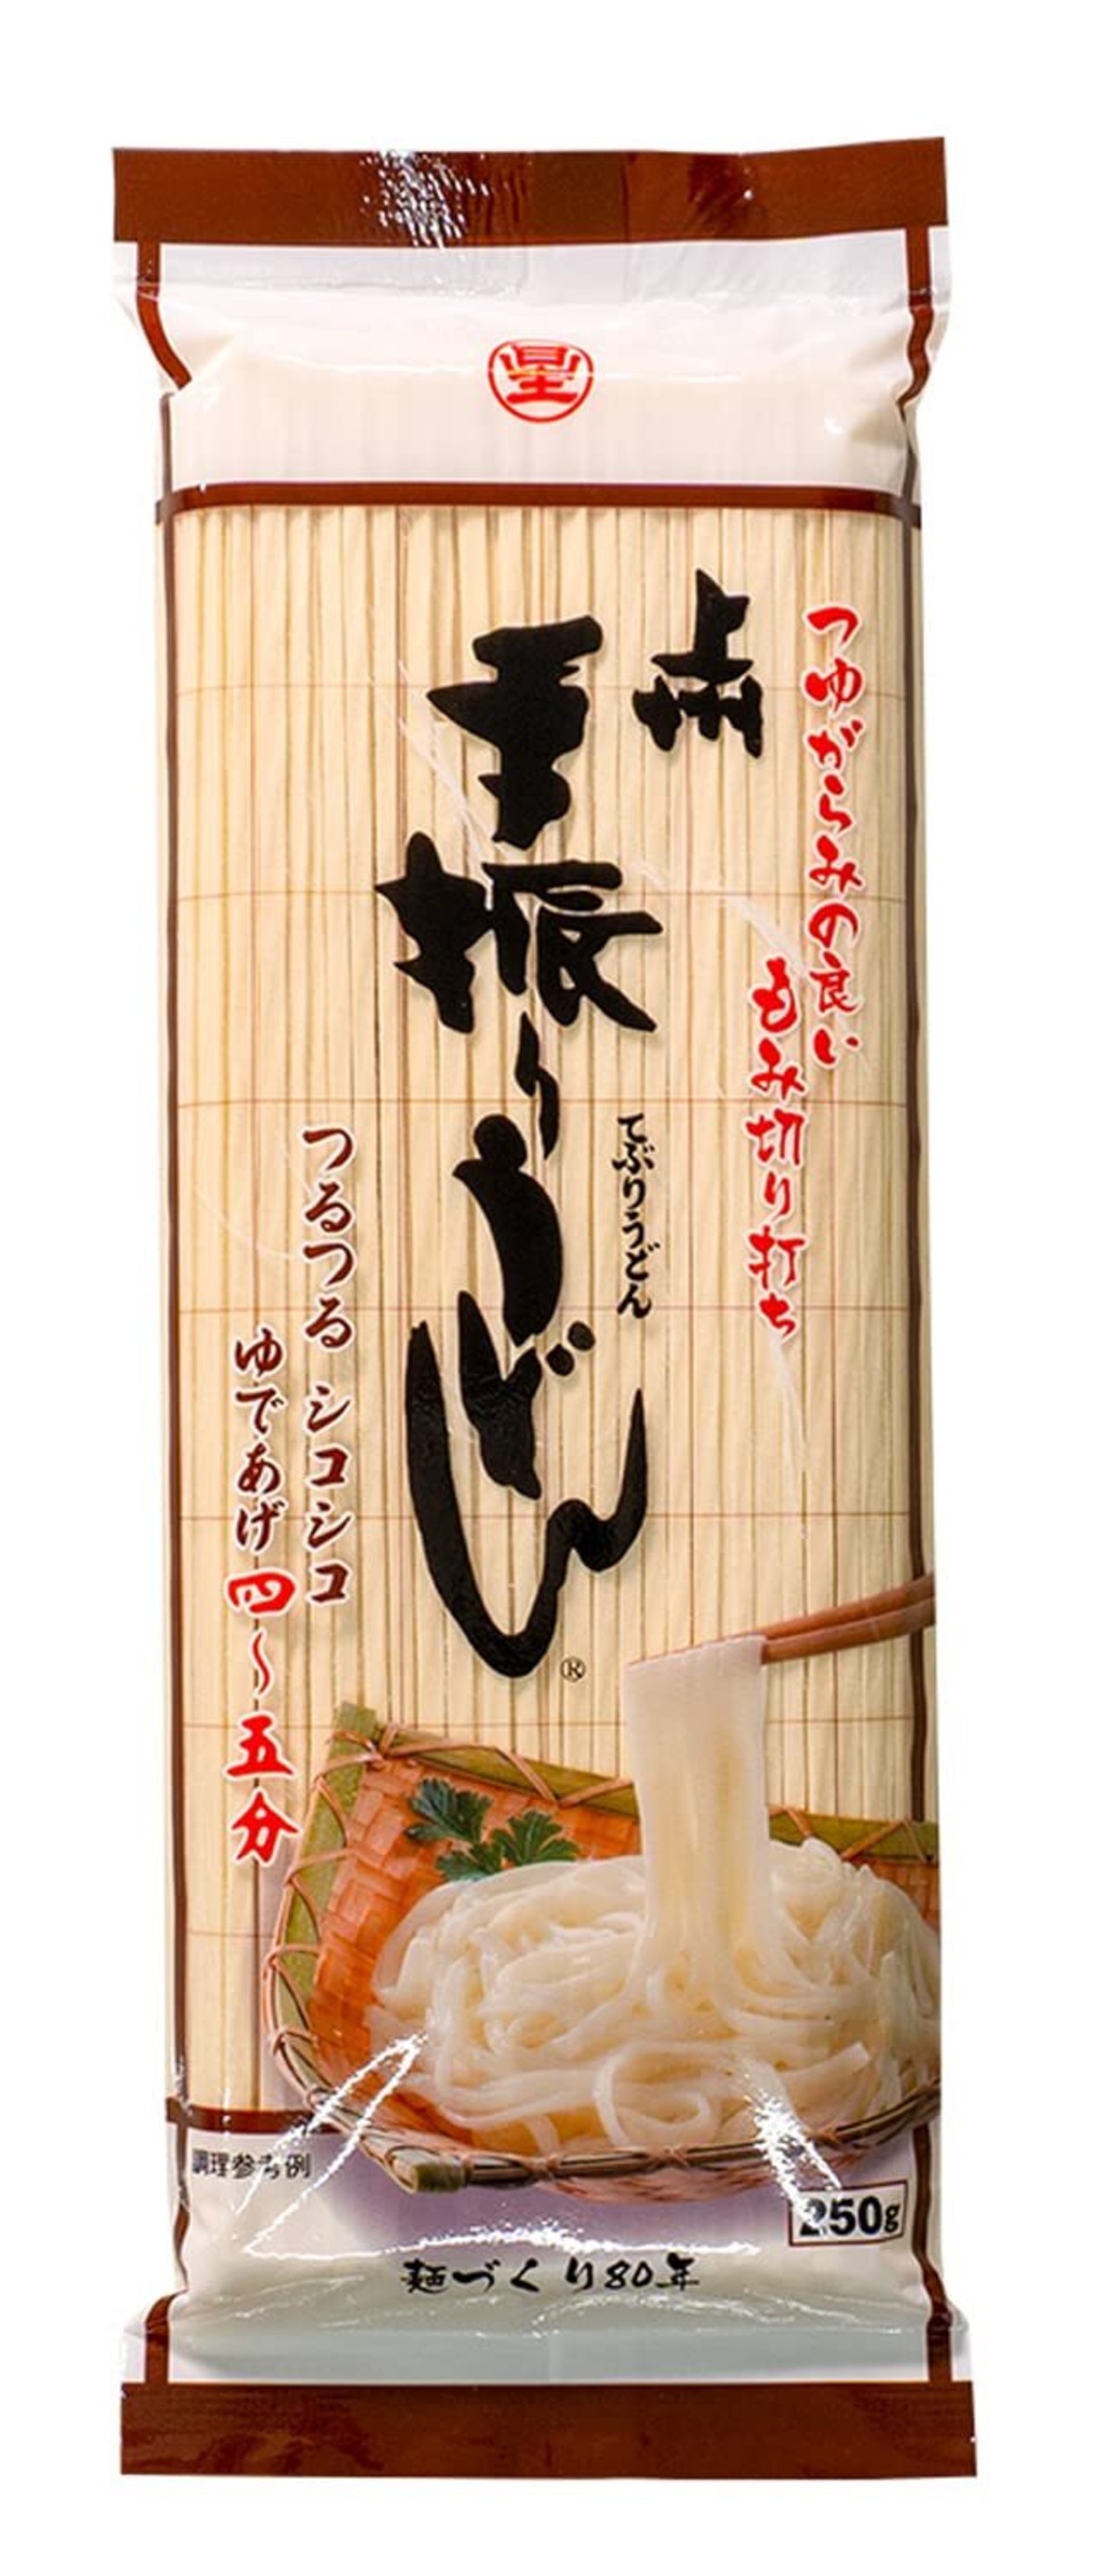 つゆがらみの良い
もみ切り打ち
上州
手振りうどん
てぶりうどん
®
つるつる シコシコ
ゆであげ四〜五分
調理参考例
250g
麺づくり80年